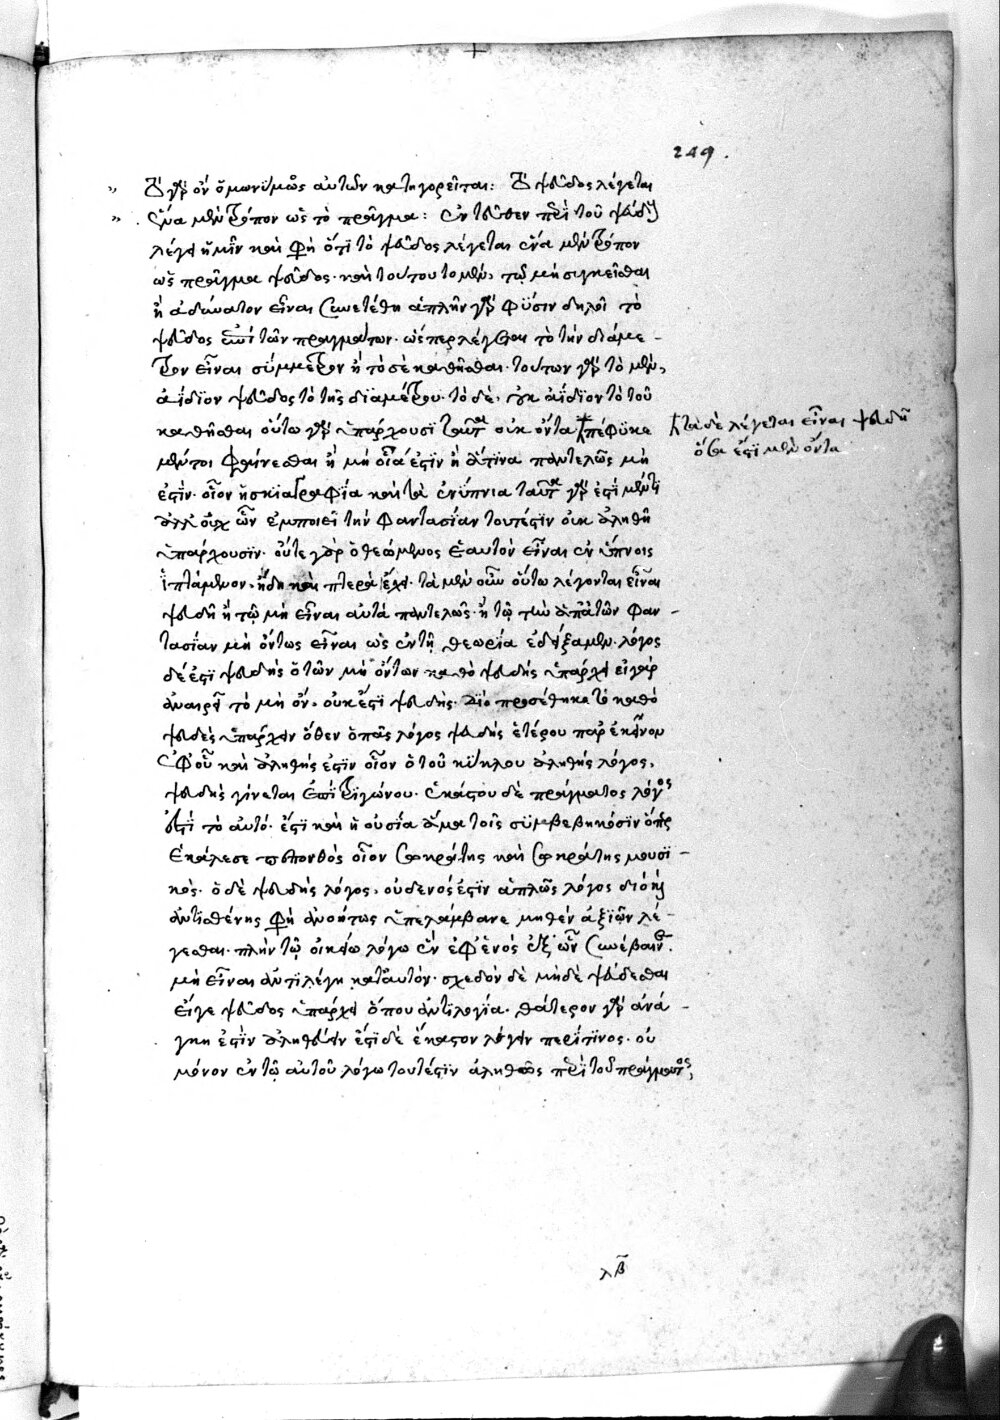 249.
τὸ γὰρ ὂν ὁμωνύμως αὐτῶν κατηγορεῖται: τὸ ψεῦδος λέγεται
ἕνα μὲν τρόπον ὡς τὸ πρᾶγμα: ἐντεῦθεν περὶ τοῦ ψεύδους
λέγει ἡμῖν καὶ φη ὅτι τὸ ψεῦδος λέγεται ἕνα μὲν τρόπον
ὡς πρᾶγμα ψεῦδος· καὶ τούτου τὸ μὲν, τῶ μὴ συγκεῖσθαι
ἢ ἀδύνατον εἶναι συνετέθη ἁπλῆν γὰρ φύσιν δηλοῖ τὸ
ψεῦδος ἐπὶ τῶν πραγμάτων· ὥσπερ λέγεται τὸ τὴν διάμε-
τρον εἶναι σύμμετρον ἢ τὸ σὲ καθῆσθαι· τούτων γὰρ τὸ μὲν,
ἀΐδιον ψεῦδος τὸ τῆς διαμέτρου· τὸ δὲ, οὐκ ἀΐδιον τὸ τοῦ
καθῆσθαι οὕτω γὰρ ὑπάρχουσι ταῦτα οὐκ ὄντα πέφυκε
τὰ δὲ λέγεται εἶναι ψευδῆ
ὅσα ἐστὶ μὲν ὄντα
μέντοι φαίνεσθαι ἢ μὴ οἷα ἐστὶν ἢ ἅτινα παντελῶς μὴ
ἐστίν· οἷον ἡ σκιαγραφία καὶ τὰ ἐνύπνια ταῦτα γὰρ ἐστὶ μέν τι
ἀλλ' οὐχ ὧν ἐμποιεῖ τὴν φαντασίαν τουτέστιν οὐκ ἀληθῆ
ὑπάρχουσιν· οὔτε γὰρ ὁ θεώμενος ἑαυτὸν εἶναι ἐν ὕπνοις
ἱπτάμενον, ἤδη καὶ πτερὰ ἔχει· τὰ μὲν οὖν οὕτω λέγονται εἶναι
ψευδῆ ἢ τῶ μὴ εἶναι αὐτὰ παντελῶς· ἢ τῶ τὴν ἀπ' αὐτῶν φαν-
τασίαν μὴ ὄντως εἶναι ὡς ἐν τῆ θεωρία ἐδείξαμεν· λόγος
δέ ἐστι ψευδὴς ὁ τῶν μὴ ὄντων καθὸ ψευδὴς ὑπάρχει εἰ γὰρ
ἀναιρεῖ τὸ μὴ ὂν, οὐκ ἔστι ψευδής· διὸ προσέθηκε τὸ καθὸ
ψευδὲς ὑπάρχειν ὅθεν ὁ πᾶς λόγος ψευδὴς ἑτέρου παρ' ἐκεῖνον
ἐφ' οὗ καὶ ἀληθής ἐστιν οἷον ὁ τοῦ κύκλου ἀληθὴς λόγος,
ψευδὴς γίνεται ἐπὶ τριγώνου· ἑκάστου δὲ πράγματος λόγος
ἐπὶ τὸ αὐτό· ἐστὶ καὶ ἡ οὐσία ἅμα τοῖς συμβεβηκόσιν ὅπερ
ἐκάλεσε πεπονθὸς οἷον Σωκράτης καὶ Σωκράτης μουσι-
κός· ὁ δὲ ψευδὴς λόγος, οὐδενός ἐστιν ἁπλῶς λόγος διὸ ἡ
ἀντισθένης φη ἀνοήτως ὑπελάμβανε μηθὲν ἀξιῶν λέ-
γεσθαι· πλὴν τῶ οἰκείω λόγω ἓν ἐφ' ἑνὸς ἐξ ὧν συνέβαινε
μὴ εἶναι ἀντιλέγειν κατ' αὐτόν· σχεδὸν δὲ μηδὲ ψεύδεσθαι
εἴγε ψεῦδος ὑπάρχει ὅπου ἀντιλογία· θάτερον γὰρ ἀνά-
γκη ἐστὶν ἀληθεύειν ἔστι δὲ ἕκαστον λέγειν περί τινος· οὐ
μόνον ἐν τῶ αὐτοῦ λόγω τουτέστιν ἀληθῶς περὶ τοῦ πράγματος,
λβ